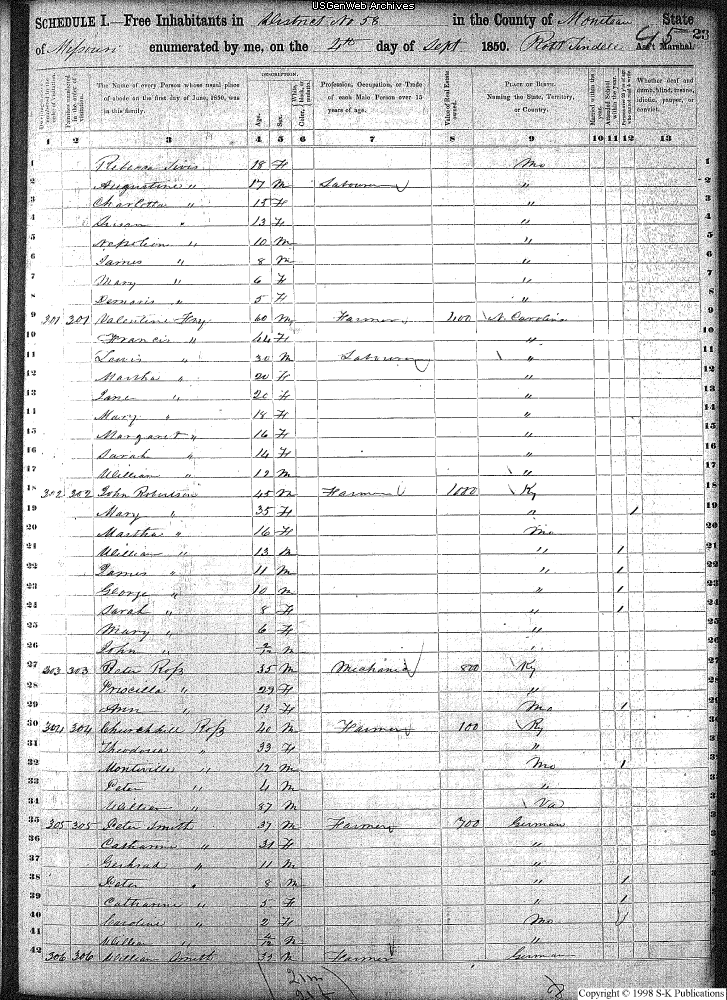 USGenWeb Archives
SCHEDULE I.—Free Inhabitants in District No 58 in the County of Moniteau State
of Missouri enumerated by me, on the 4th day of Sept 1850. Robt Tindell Ass't Marshal.
95
23
DESCRIPTION.
The Name of every Person whose usual place of abode on the first day of June, 1850, was in this family.
Age.
Sex.
Profession, Occupation, or Trade of each Male Person over 15 years of age.
Value of Real Estate owned.
PLACE OF BIRTH. Naming the State, Territory, or Country.
Whether deaf and dumb, blind, insane, idiotic, pauper, or convict.
1 2 3 4 5 6 7 8 9 10 11 12 13
1 Rebecca 18 F Mo
2 Augustine " 17 M Labourer "
3 Charlotte " 15 F "
4 Susan " 13 F "
5 Napoleon " 10 M "
6 James " 8 M "
7 Mary " 6 F "
8 Demaris " 5 F "
9 301 301 Valentine Fry 60 M Farmer 400 N Carolina
10 Francis " 44 F "
11 Lewis " 30 M Labourer "
12 Martha " 20 F "
13 Jane " 20 F "
14 Mary " 18 F "
15 Margaret " 16 F "
16 Sarah " 14 F "
17 William " 12 M "
18 302 302 John Robertson 45 M Farmer 1000 Ky
19 Mary " 35 F " 1
20 Martha " 16 F Mo
21 William " 13 M " 1
22 James " 11 M " 1
23 George " 10 M " 1
24 Sarah " 8 F " 1
25 Mary " 6 F "
26 John " M "
27 303 303 Peter Ross 35 M Mechanic 800 Ky
28 Priscilla " 29 F "
29 Ann " 13 F Mo 1
30 304 304 Churchhill Ross 40 M Farmer 100 Ky
31 Theodosia " 33 F "
32 Monteville " 12 M Mo 1
33 Peter " 4 M "
34 William " 87 M Va
35 305 305 Peter Smith 37 M Farmer 700 German
36 Catharine " 31 F "
37 " 11 M "
38 Peter " 8 M " 1
39 Catharine " 5 F " 1
40 Caroline " 2 F Mo
41 William " M "
42 306 306 William Smith 39 M Farmer German
21 m
Copyright © 1998 S-K Publications